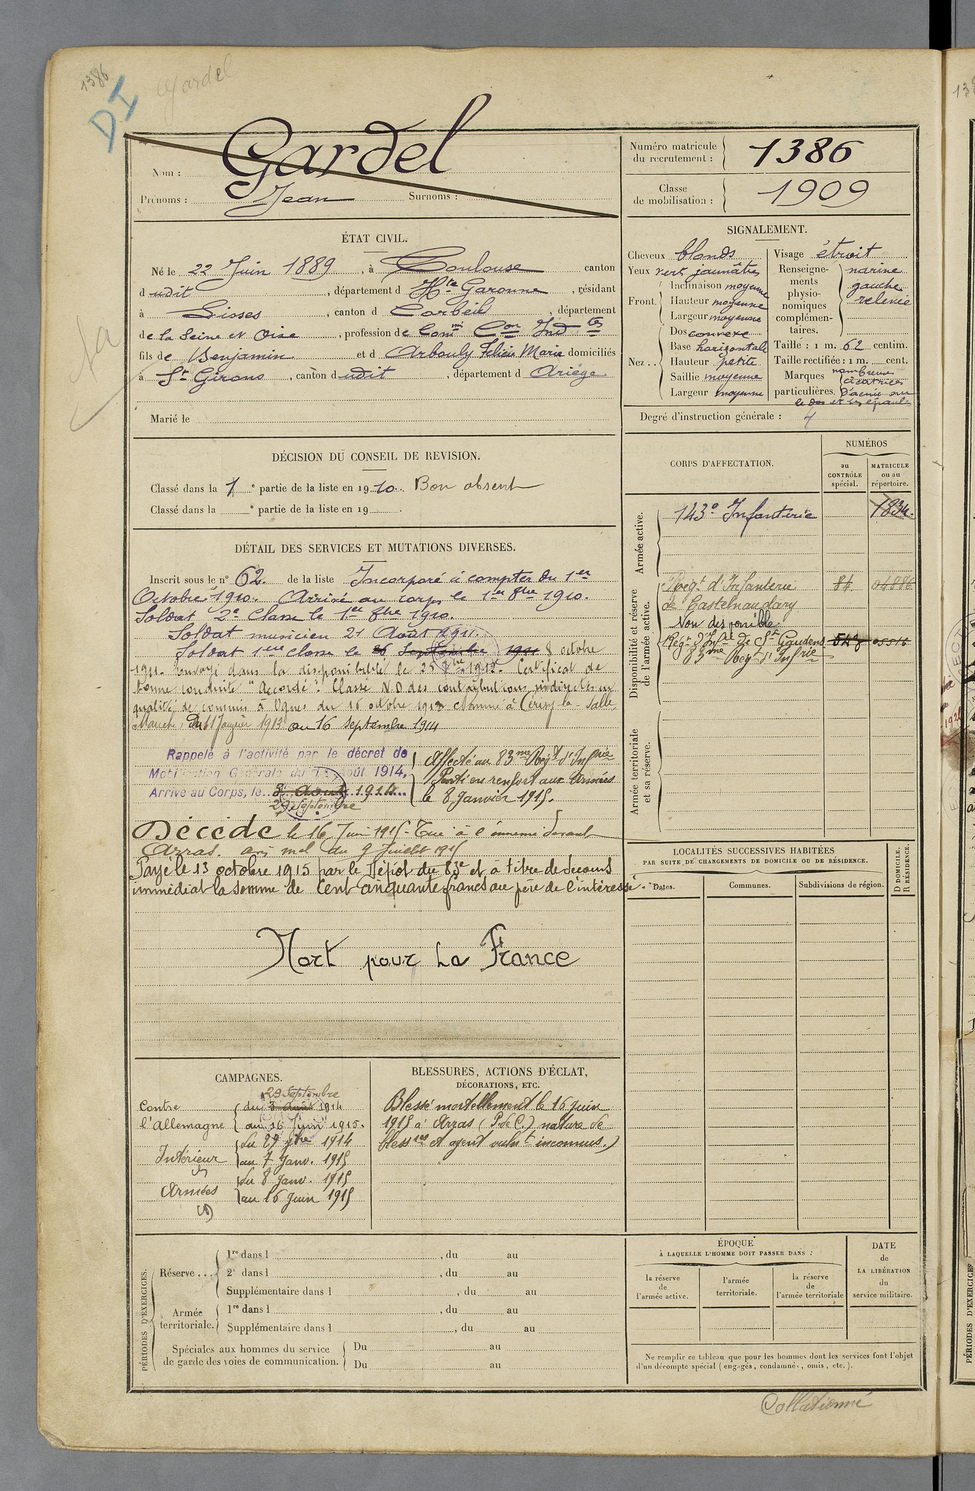 1386
Gardel
DI
Nom : Gardel
Prénoms : Jean Surnoms :
Numéro matricule du recrutement : 1386
Classe de mobilisation : 1909
ÉTAT CIVIL.
Né le 22 Juin 1889, à Toulouse canton
dudit, département d Hte Garonne, résidant
à Lisses, canton d Corbeil, département
de la Seine et Oise, profession de Comis Con Indtes
fils de Benjamin et d Arbouly Felicie Marie domiciliés
à St Girons, canton dudit, département d Ariège
Marié le
SIGNALEMENT.
Cheveux blonds
Yeux vert jaunâtre
Front. Inclinaison moyenne
Hauteur moyenne
Largeur moyenne
Nez .. Dos convexe
Base horizontale
Hauteur petite
Saillie moyenne
Largeur moyenne
Visage étroit
Renseignements physionomiques complémentaires. narine gauche relevée
Taille : 1 m. 62 centim.
Taille rectifiée : 1 m. cent.
Marques particulières. nombreuses cicatrices d'acnée sur le dos et les épaules
Degré d'instruction générale : 4
DÉCISION DU CONSEIL DE REVISION.
Classé dans la 1e partie de la liste en 1910. Bon absent
Classé dans la e partie de la liste en 19
DÉTAIL DES SERVICES ET MUTATIONS DIVERSES.
Inscrit sous le n° 62 de la liste Incorporé à compter du 1er
Octobre 1910. Arrivé au corps le 1er 8bre 1910.
Soldat 2e classe le 1er 8bre 1910.
Soldat musicien 21 Août 1911.
Soldat 1ere classe le 26 Septembre 1911 8 octobre
1911. Envoyé dans la disponibilité le 25 7bre 1912. Certificat de
bonne conduite "Accordé". Classé N.D des contributions indirectes en
qualité de commis à Ognes du 16 octobre 1913 Nommé à Cerisy la Salle
(Manche) du 1 Janvier 1913 au 16 septembre 1914
Rappelé à l'activité par le décret de
Mobilisation Générale du 1er août 1914,
Arrivé au Corps, le 3 Août 1914
29 septembre
Affecté au 83me Regt d'Infrie
Parti en renfort aux Armées
le 8 Janvier 1915.
Décédé le 16 Juin 1915 Tué à l'ennemi devant
Arras. avis mel du 9 Juillet 1915
Payé le 13 octobre 1915 par le Dépôt du 83e et à titre de Secours
immédiat la somme de Cent cinquante francs au père de l'intéressé.
Mort pour la France
CORPS D'AFFECTATION.
NUMÉROS
au CONTRÔLE spécial.
MATRICULE ou au répertoire.
Armée active.
143e Infanterie 1834
Disponibilité et réserve de l'armée active.
Regt d'Infanterie 84 04886
de Castelnaudary
Non disponible
Rég. d'Infie de St Gaudens 542
83me Regt d'Infrie
Armée territoriale et sa réserve.
LOCALITÉS SUCCESSIVES HABITÉES
PAR SUITE DE CHANGEMENTS DE DOMICILE OU DE RÉSIDENCE.
Dates. Communes. Subdivisions de région. D DOMICILE. R RÉSIDENCE.
CAMPAGNES.
29 Septembre
Contre l'Allemagne du 3 août 1914
au 16 Juin 1915.
Intérieur du 29 7bre 1914
au 7 Janv. 1915
Armées du 8 Janv. 1915
au 16 Juin 1915
BLESSURES, ACTIONS D'ÉCLAT,
DÉCORATIONS, ETC.
Blessé mortellement le 16 juin
1915 à Arras (P. de C.) nature de
blessres et agent vulnt inconnus.)
PÉRIODES D'EXERCICES.
Réserve ... 1re dans l , du au
2e dans l , du au
Supplémentaire dans l , du au
Armée territoriale. 1re dans l , du au
Supplémentaire dans l , du au
Spéciales aux hommes du service de garde des voies de communication. Du au
Du au
ÉPOQUE
À LAQUELLE L'HOMME DOIT PASSER DANS :
la réserve de l'armée active. l'armée territoriale. la réserve de l'armée territoriale
DATE de LA LIBÉRATION du service militaire.
Ne remplir ce tableau que pour les hommes dont les services font l'objet
d'un décompte spécial (engagés, condamnés, omis, etc.).
Collationné
PÉRIODES D'EXERCICES